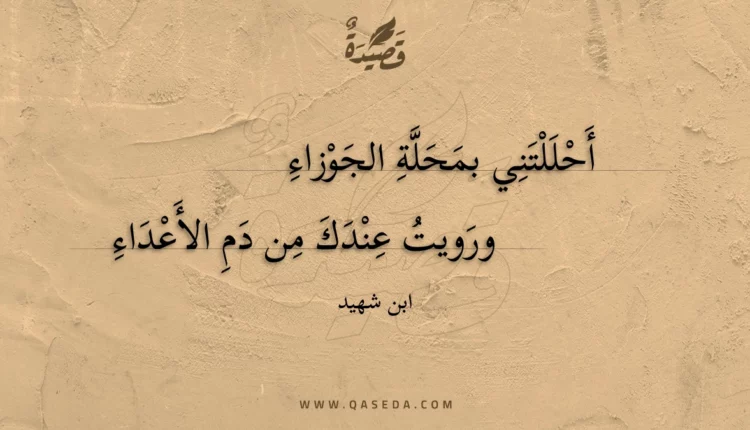 قَصِيدَةٌ
أَحْلَلْتَنِي بمَحَلَّةِ الجَوْزاءِ
ورَويتُ عِنْدَكَ مِن دَمِ الأَعْدَاءِ
ابن شهيد
WWW.QASEDA.COM